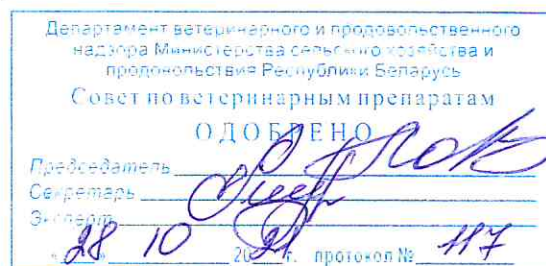 Департамент ветеринарного и продовольственного
надзора Министерства сельского хозяйства и
продовольствия Республики Беларусь
Совет по ветеринарным препаратам
ОДОБРЕНО
Председатель
Секретарь
Эксперт
«28» 10 2021 г. протокол № 117